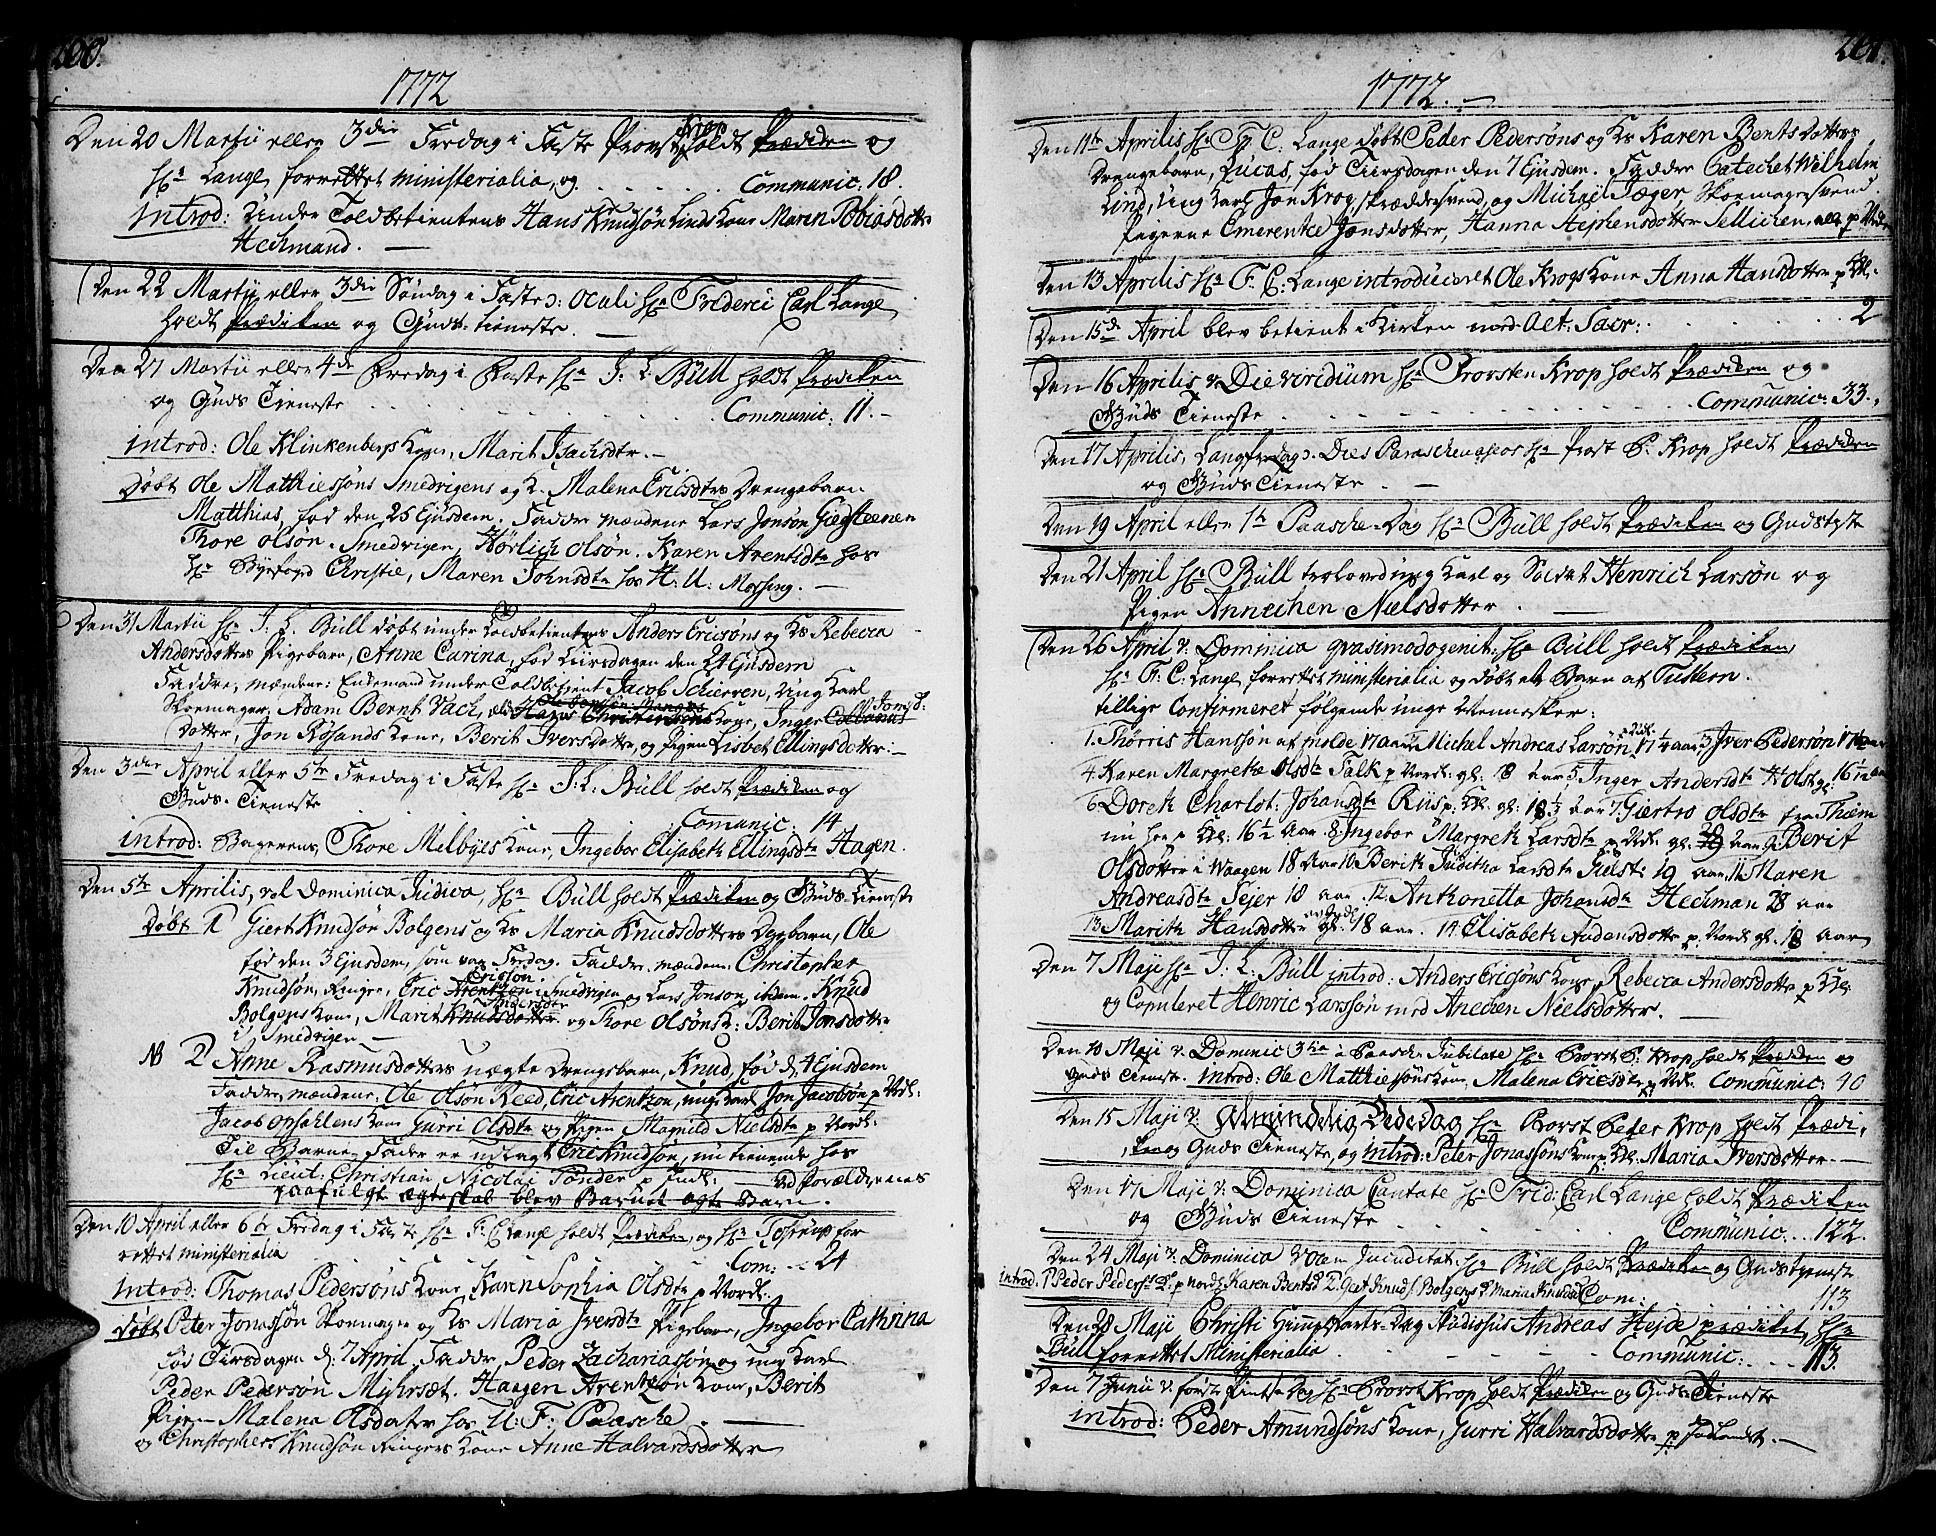 200.
1772
Den 20 Martii eller 3die Fredag i Faste Provst Krop holdt Prædiken og
Hr Lange forrettet ministerialia, og Communic: 18.
introd: Under Toldbetientens Hans Knudsøn Linds Kone Maren Tobiasdotter
Heckmand.
Den 22 Martii eller 3die Søndag i Faste ɔ: Oculi Hr Friderici Carl Lange
holdt Prædiken og Guds-tieneste.
Den 27 Martii eller 4de Fredag i Faste Hr J. L. Bull holdt Prædiken
og Guds Tieneste Communic: 11.
introd: Ole Klinkenbergs Kone, Marit Isachsdtr.
Døbt Ole Matthiesøns Smedvigens og K. Malena Ericsdtrs Drengebarn
Matthias, fød den 25 Ejusdem. Faddre mændene Lars Jonsøn Giedsteenen
Thore Olsøn Smedvigen, Hørlich Olsøn. Karen Arentsdtr hos
Hr Byefogd Christie, Maren Johnsdtr hos H: U: Mossing.
Den 31 Martii Hr J. L. Bull døbt under Toldbetientens Anders Ericsøns og Ks Rebecca
Andersdotters Pigebarn, Anne Carina, fød Tiirsdagen den 24 Ejusdem
Faddre, mændene: Enkemand under Toldbetient Jacob Schierven, Ung Karl
Skomager, Adam Bernt Vach, Hans Christensøns Kone, Inger
Dotter, Jon Røsands Kone, Berit Iversdotter, og Pigen Lisbet Ellingsdotter.
Den 3die April eller 5te Fredag i Faste Hr J. L: Bull holdt Prædiken og
Guds-Tieneste
Comunic. 14
introd: Bagerens Thore Melbyes Kone, Ingebor Elisabeth Ellingsdtr Hagen.
Den 5te Aprilis, vel Dominica Judica, Hr Bull holdt Prædiken og Guds-Tieneste
Døbt 1 Giert Knudsøn Bolgens og Ks Maria Knudsdotters Dengbarn, Ole
fød den 3 Ejusdem, som var Fredag. Faddr. mændene Christopher
Knudsøn, Ringer, Eric Arentzon Ericson i Smedvigen og Lars Jonson ibidem. Knud
Bolgens Kone, Marit Knudsdotter Andersdtr og Thore Olsøns K: Berit Jonsdotter
i Smedvigen
NB 2 Anne Rasmusdotters uægte Drengebarn, Knud, fød d. 4 Ejusdem
Faddre, mændene: Ole Olsøn Reed, Eric Arentzon, ung Karl Jon Jacobsøn p Nordl:
Jacob Opsahlens Kone Gurri Olsdtr og Pigen Magnild Nielsdtr p Nordl:
Til Barne-Fader er udlagt Eric Knudsøn, nu tienende hos
Hr Lieut: Christian Nicolai Tønder p Indl: ved Forældrenes
paafulgt ægteskab blev Barnet ægte Barn.
Den 10 April eller 6te Fredag i Faste Hr F. C. Lange holdt Prædiken, og Hr for
rettet ministerialia Com: 24
introd: Thomas Pedersøns Kone, Karn Sophia Olsdtr p Nordl:
døbt Peter Jonassøn Skomager og Ks Maria Iversdtr Pigebarn, Ingebor Cathrina
fød Tirsdagen d: 7 April. Faddre, Peder Zachariassøn og ung Karl
Peder Pedersøn Mijhrsæt. Haagen Arentzøn Kone, Berit
Pigen Malena Olsdater hos U: F: Paasche.
og Christophers Knudsøn Ringers Kone Anne Halvardsdotter
201.
1772.
Den 11te Aprilis Hr F. C. Lange døbt Peder Pedersøns og Ks Karen Bentsdotters
Drengebarn, Lucas, fød Tiirsdagen den 7 Ejusdem. Faddre Catechet Wilhelm
Lind, Ung Karl Jon Krog, Skræddersvend, og Michael Jæger, Skomagersvend.
Pigerne Emerentze Jonsdotter, Hanna Stephensdotter Sellichen alle p Nordl
Den 13 Aprilis Hr F. C: Lange introduceret Ole Krogs Kone Anna Hansdotter p Kl:
Den 15de April blev betient i Kirken med Alt: Sacr: 2
Den 16 Aprilis ɔ: Die viridium Hr Provsten Krop holdt Prædiken og
Guds Tieneste Communic. 33.
Den 17 Aprilis, Langfredag ɔ. Dies Parascheuaseos Hr Prost P. Krop holdt Prædiken
og Guds Tieneste
Den 19 April eller 1te Paasche-Dag Hr Bull holdt Prædiken og Gudstieste
Den 21 April Hr Bull troloved ung Karl og Soldat Henrich Larsøn og
Pigen Annechen Nielsdotter.
Den 26 April ɔ: Dominica qvasimodogenit: Hr Bull holdt Prædiken,
Hr F. C: Lange forrettet ministerialia og døbt et Barn af Tustern.
tillige Confirmeret følgende unge Mennesker:
1. Thørris Hanssøn af Molde 17 aar 2 Michel Andreas Larsøn 17 1/4 aar 3 Iver Pedersøn 17 1/2 aar
4 Karen Margrethe Olsdtr Falk p Nordl: gl: 18 aar 5 Inger Andersdtr Holst gl: 16 1/2 aar
6 Doreth Charlot: Johansdtr Riis p Kl gl: 18 1/2 aar 7 Giertrø Olsdtr fra Thiem
nu her p Kl: 16 1/2 Aar 8 Ingebor Margreth Larsdtr p Nordl gl. 20 aar 9 Berit
Olsdotter i Waagen 18 Aar 10 Berith Juditha Larsdtr Gielst: 19 aar, 11 Maren
Andreasdtr Sejer 18 aar. 12 Anthonetta Johansdtr Heckman 28 aar
13 Marith Hansdotter gl. 18 aar. 14 Elisabeth Audensdotter p. Nordl gl. 18 aar
Den 7 Maji Hr J. L. Bull introd: Anders Ericsøns Kone, Rebecca Andersdotter p Kl:
og Copuleret Henric Larssøn med Anechen Nielsdotter.
Den 10 Maji ɔ. Dominic 3tia à Pasch: Jubilate Hr Provst P. Krop holdt Prædiken og
Guds Tienest. introd: Ole Matthiessøns Kone, Malena Ericsdtr p Nordl. Communic: 40
Den 15 Maji ɔ: Almindelig Bededag Hr Provst Peter Krop holdt Prædi,
ken og Guds Tieneste, og introd: Peter Jonassøns Kone p: Kl. Maria Iversdotter.
Den 17 Maji ɔ: Dominica Cantate Hr Frid: Carl Lange holdt Prædiken
og Guds Tieneste
Communic. 122.
Den 24 Maji ɔ: Dominica Vocem Jucunditat: Hr Bull holdt Prædiken og Gudstienest
introd: 1 Peder Peders: K: p Nordl: Karen Bentsd 2. Giert Knuds: Bolgens K Maria Knudsd Com: 113
Den 28 Maji Christi Himmelfarts-Dag Studiosus Andreas Hejde prædiket, Hr
Bull forrettet Ministerialia Communic: 113.
Den 7 Junii ɔ. første Pintse Dag Hr Provst Krop holdt Prædiken og Guds-Tieneste
introd: Peder Amundsøns Kone, Gurri Halvardsdotter p Indlandet.